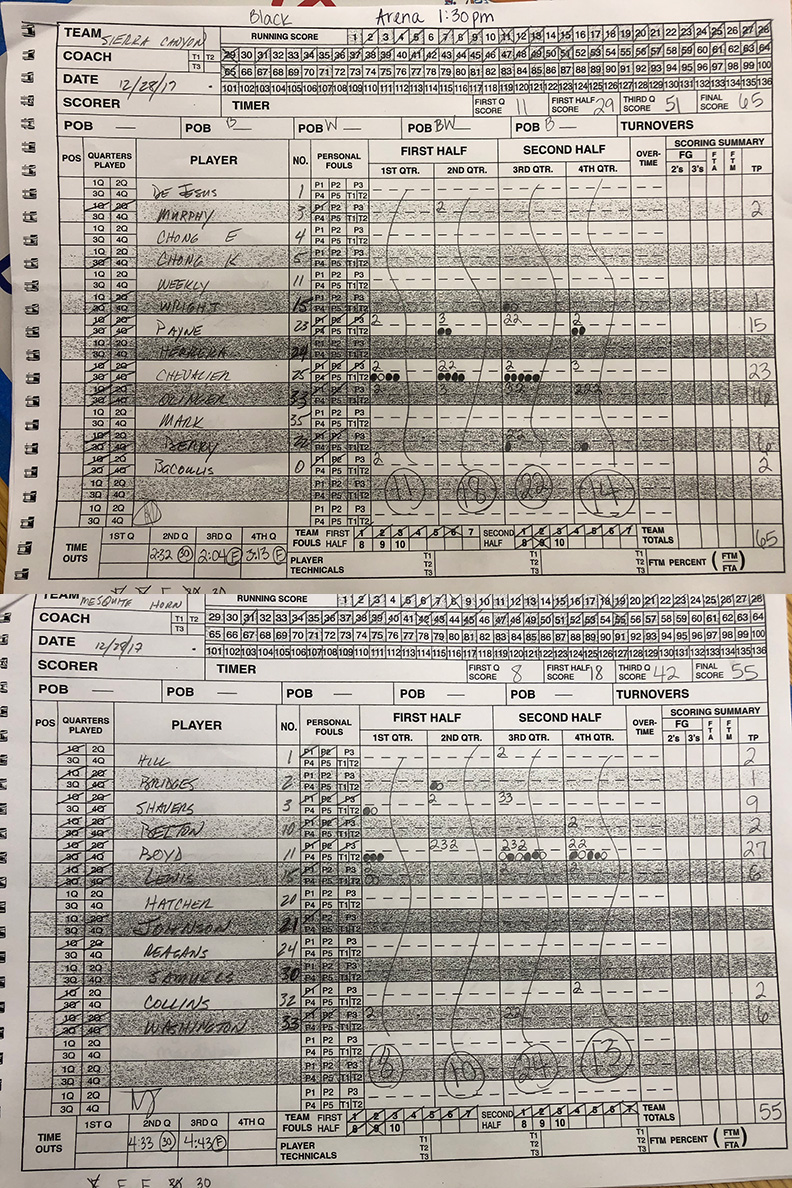 Black Arena 1:30pm
TEAM SIERRA CANYON RUNNING SCORE 1 2 3 4 5 6 7 8 9 10 11 12 13 14 15 16 17 18 19 20 21 22 23 24 25 26 27 28
COACH T1 T2 T3 29 30 31 32 33 34 35 36 37 38 39 40 41 42 43 44 45 46 47 48 49 50 51 52 53 54 55 56 57 58 59 60 61 62 63 64
65 66 67 68 69 70 71 72 73 74 75 76 77 78 79 80 81 82 83 84 85 86 87 88 89 90 91 92 93 94 95 96 97 98 99 100
DATE 12/28/17 101 102 103 104 105 106 107 108 109 110 111 112 113 114 115 116 117 118 119 120 121 122 123 124 125 126 127 128 129 130 131 132 133 134 135 136
SCORER TIMER FIRST Q SCORE 11 FIRST HALF SCORE 29 THIRD Q SCORE 51 FINAL SCORE 65
POB — POB B— POB W— POB BW— POB B— TURNOVERS
POS QUARTERS PLAYED PLAYER NO. PERSONAL FOULS FIRST HALF SECOND HALF OVER-TIME SCORING SUMMARY
1ST QTR. 2ND QTR. 3RD QTR. 4TH QTR. FG 2's 3's FTA FTM TP
1Q 2Q 3Q 4Q DE JESUS 1 P1 P2 P3 P4 P5 T1 T2
1Q 2Q 3Q 4Q MURPHY 3 P1 P2 P3 P4 P5 T1 T2 2 2
1Q 2Q 3Q 4Q CHONG E 4 P1 P2 P3 P4 P5 T1 T2
1Q 2Q 3Q 4Q CHONG K 5 P1 P2 P3 P4 P5 T1 T2
1Q 2Q 3Q 4Q WEEKLY 11 P1 P2 P3 P4 P5 T1 T2
1Q 2Q 3Q 4Q WRIGHT 15 P1 P2 P3 P4 P5 T1 T2 1
1Q 2Q 3Q 4Q PAYNE 23 P1 P2 P3 P4 P5 T1 T2 2 3 22 2 15
1Q 2Q 3Q 4Q HERRERA 24 P1 P2 P3 P4 P5 T1 T2
1Q 2Q 3Q 4Q CHEVALIER 25 P1 P2 P3 P4 P5 T1 T2 2 22 2 3 23
1Q 2Q 3Q 4Q 33 P1 P2 P3 P4 P5 T1 T2 3 222 16
1Q 2Q 3Q 4Q MARK 35 P1 P2 P3 P4 P5 T1 T2
1Q 2Q 3Q 4Q BERRY P1 P2 P3 P4 P5 T1 T2 22 6
1Q 2Q 3Q 4Q 0 P1 P2 P3 P4 P5 T1 T2 2 2
1Q 2Q 3Q 4Q P1 P2 P3 P4 P5 T1 T2 11 18 22 14
1Q 2Q 3Q 4Q P1 P2 P3 P4 P5 T1 T2
TIME OUTS 1ST Q 2ND Q 3RD Q 4TH Q TEAM FOULS FIRST HALF 1 2 3 4 5 6 7 8 9 10 SECOND HALF 1 2 3 4 5 6 7 8 9 10 TEAM TOTALS 65
2:32 30 2:04 F 3:13 F PLAYER TECHNICALS T1 T2 T3 T1 T2 T3 T1 T2 T3 FTM PERCENT (FTM/FTA)
TEAM MESQUITE HORN RUNNING SCORE 1 2 3 4 5 6 7 8 9 10 11 12 13 14 15 16 17 18 19 20 21 22 23 24 25 26 27 28
COACH T1 T2 T3 29 30 31 32 33 34 35 36 37 38 39 40 41 42 43 44 45 46 47 48 49 50 51 52 53 54 55 56 57 58 59 60 61 62 63 64
65 66 67 68 69 70 71 72 73 74 75 76 77 78 79 80 81 82 83 84 85 86 87 88 89 90 91 92 93 94 95 96 97 98 99 100
DATE 12/28/17 101 102 103 104 105 106 107 108 109 110 111 112 113 114 115 116 117 118 119 120 121 122 123 124 125 126 127 128 129 130 131 132 133 134 135 136
SCORER TIMER FIRST Q SCORE 8 FIRST HALF SCORE 18 THIRD Q SCORE 42 FINAL SCORE 55
POB — POB — POB — POB — POB — TURNOVERS
POS QUARTERS PLAYED PLAYER NO. PERSONAL FOULS FIRST HALF SECOND HALF OVER-TIME SCORING SUMMARY
1ST QTR. 2ND QTR. 3RD QTR. 4TH QTR. FG 2's 3's FTA FTM TP
1Q 2Q 3Q 4Q HILL 1 P1 P2 P3 P4 P5 T1 T2 2 2
1Q 2Q 3Q 4Q BRIDGES 2 P1 P2 P3 P4 P5 T1 T2 1
1Q 2Q 3Q 4Q SHAVERS 3 P1 P2 P3 P4 P5 T1 T2 2 33 9
1Q 2Q 3Q 4Q BELTON 10 P1 P2 P3 P4 P5 T1 T2 2 2
1Q 2Q 3Q 4Q BOYD 11 P1 P2 P3 P4 P5 T1 T2 232 232 22 27
1Q 2Q 3Q 4Q LEWIS 15 P1 P2 P3 P4 P5 T1 T2 6
1Q 2Q 3Q 4Q HATCHER 20 P1 P2 P3 P4 P5 T1 T2
1Q 2Q 3Q 4Q JOHNSON 21 P1 P2 P3 P4 P5 T1 T2
1Q 2Q 3Q 4Q REAGANS 24 P1 P2 P3 P4 P5 T1 T2
1Q 2Q 3Q 4Q SAMUELS 30 P1 P2 P3 P4 P5 T1 T2
1Q 2Q 3Q 4Q COLLINS 32 P1 P2 P3 P4 P5 T1 T2 2 2
1Q 2Q 3Q 4Q WASHINGTON 33 P1 P2 P3 P4 P5 T1 T2 2 22 6
1Q 2Q 3Q 4Q P1 P2 P3 P4 P5 T1 T2 8 10 24 13
1Q 2Q 3Q 4Q P1 P2 P3 P4 P5 T1 T2
1Q 2Q 3Q 4Q P1 P2 P3 P4 P5 T1 T2
TIME OUTS 1ST Q 2ND Q 3RD Q 4TH Q TEAM FOULS FIRST HALF 1 2 3 4 5 6 7 8 9 10 SECOND HALF 1 2 3 4 5 6 7 8 9 10 TEAM TOTALS 55
4:33 30 4:43 F PLAYER TECHNICALS T1 T2 T3 T1 T2 T3 T1 T2 T3 FTM PERCENT (FTM/FTA)
F F 30 30